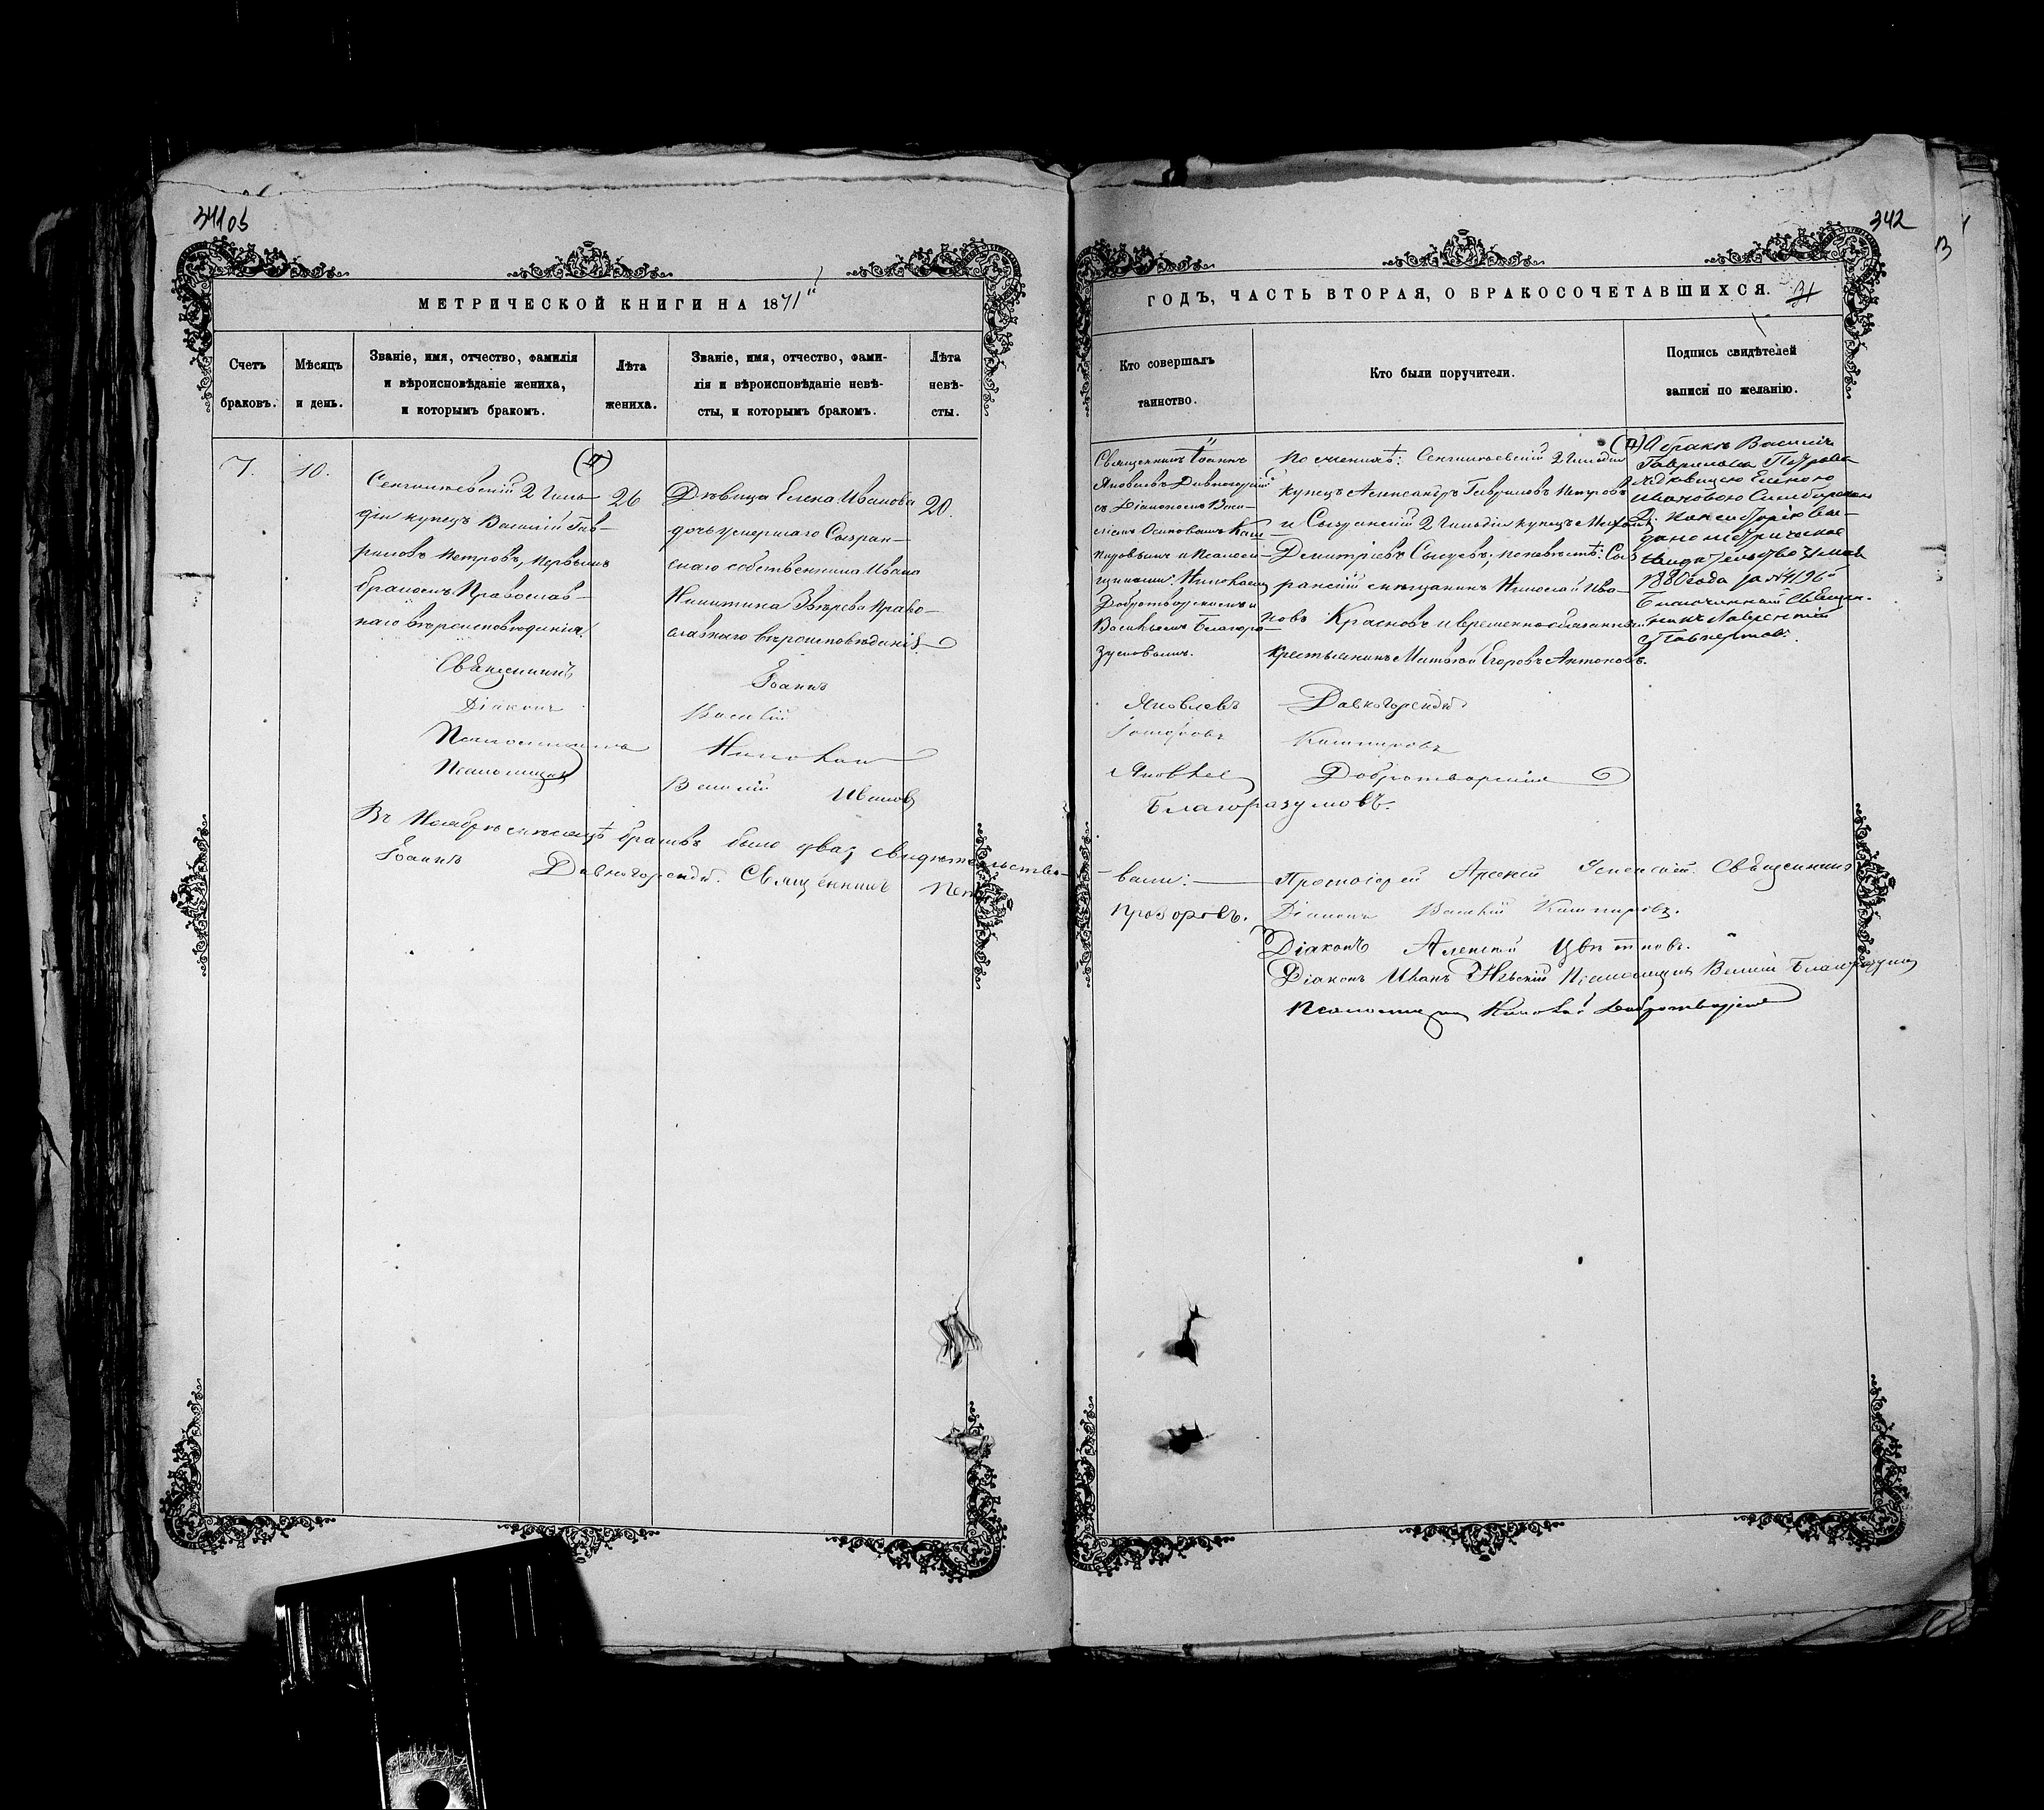 341об
МЕТРИЧЕСКОЙ КНИГИ НА 1871
Счетъ браковъ.
Мѣсяцъ и день.
Званіе, имя, отчество, фамилія
и вѣроисповѣданіе жениха,
и которымъ бракомъ.
Лѣта
жениха.
Званіе, имя, отчество, фами-
лія и вѣроисповѣданіе невѣ-
сты, и которымъ бракомъ.
Лѣта
невѣ-
сты.
7.
10.
Сенгилеевскій 2 Гиль-
діи купецъ Василій Гав-
риловъ Петровъ, первымъ
бракомъ Православ-
наго вѣроисповѣданія.
26
Дѣвица Елена Иванова
дочь умершаго Сызран-
скаго собственника Ивана
Никитина Звѣрева Право-
славнаго вѣроисповѣданія
20.
Священникъ Іоаннъ
Діаконъ Василій
Псаломщикъ Николай
Псаломщикъ Василій Ивановъ
Въ Ноябрѣ мѣсяцѣ браковъ было два; свидѣтельство-
Іоаннъ Дивногорскій. Священникъ Петръ
342
13
ГОДЪ, ЧАСТЬ ВТОРАЯ, О БРАКОСОЧЕТАВШИХСЯ.
31
Кто совершалъ
таинство.
Кто были поручители.
Подпись свидѣтелей
записи по желанію.
Священникъ Іоаннъ
Яковлевъ Дивногорскій
съ Діакономъ Васи-
ліемъ Каш-
пировымъ и Псалом-
щиками: Николаемъ
Добротворскимъ и
Василіемъ Благора-
зумовымъ.
По женихѣ: Сенгилеевскій 2 Гильдіи
купецъ Александръ Гавриловъ Петровъ
и Сызранскій 2 Гильдіи купецъ
Дмитріевъ Сыцевъ; по невѣстѣ: Сыз
ранскій мѣщанинъ Николай Ива-
новъ Красновъ и временно-обязанный
крестьянинъ Матвѣй Егоровъ Антоновъ.
О бракѣ Василія
Гаврилова Петрова
съ дѣвицею Еленою
Ивановою Симбирскою
Д. Консисторіею вы-
дано метрическое
свидѣтельство Мая
1880 года за № 4196
Благочинный Священ-
никъ Лаврентій
Яковлевъ Дивногорскій
Кашпировъ
Яковлев Добротворскій
Благоразумовъ.
вали: Протоіерей Арсеній Успенскій. Священникъ
Прозоровъ. Діаконъ Василій Кашпировъ.
Діаконъ Алексѣй Цвѣтковъ.
Діаконъ Иванъ Невскій Псаломщикъ Василій Благоразумов
Псаломщикъ Николай Добротворскій